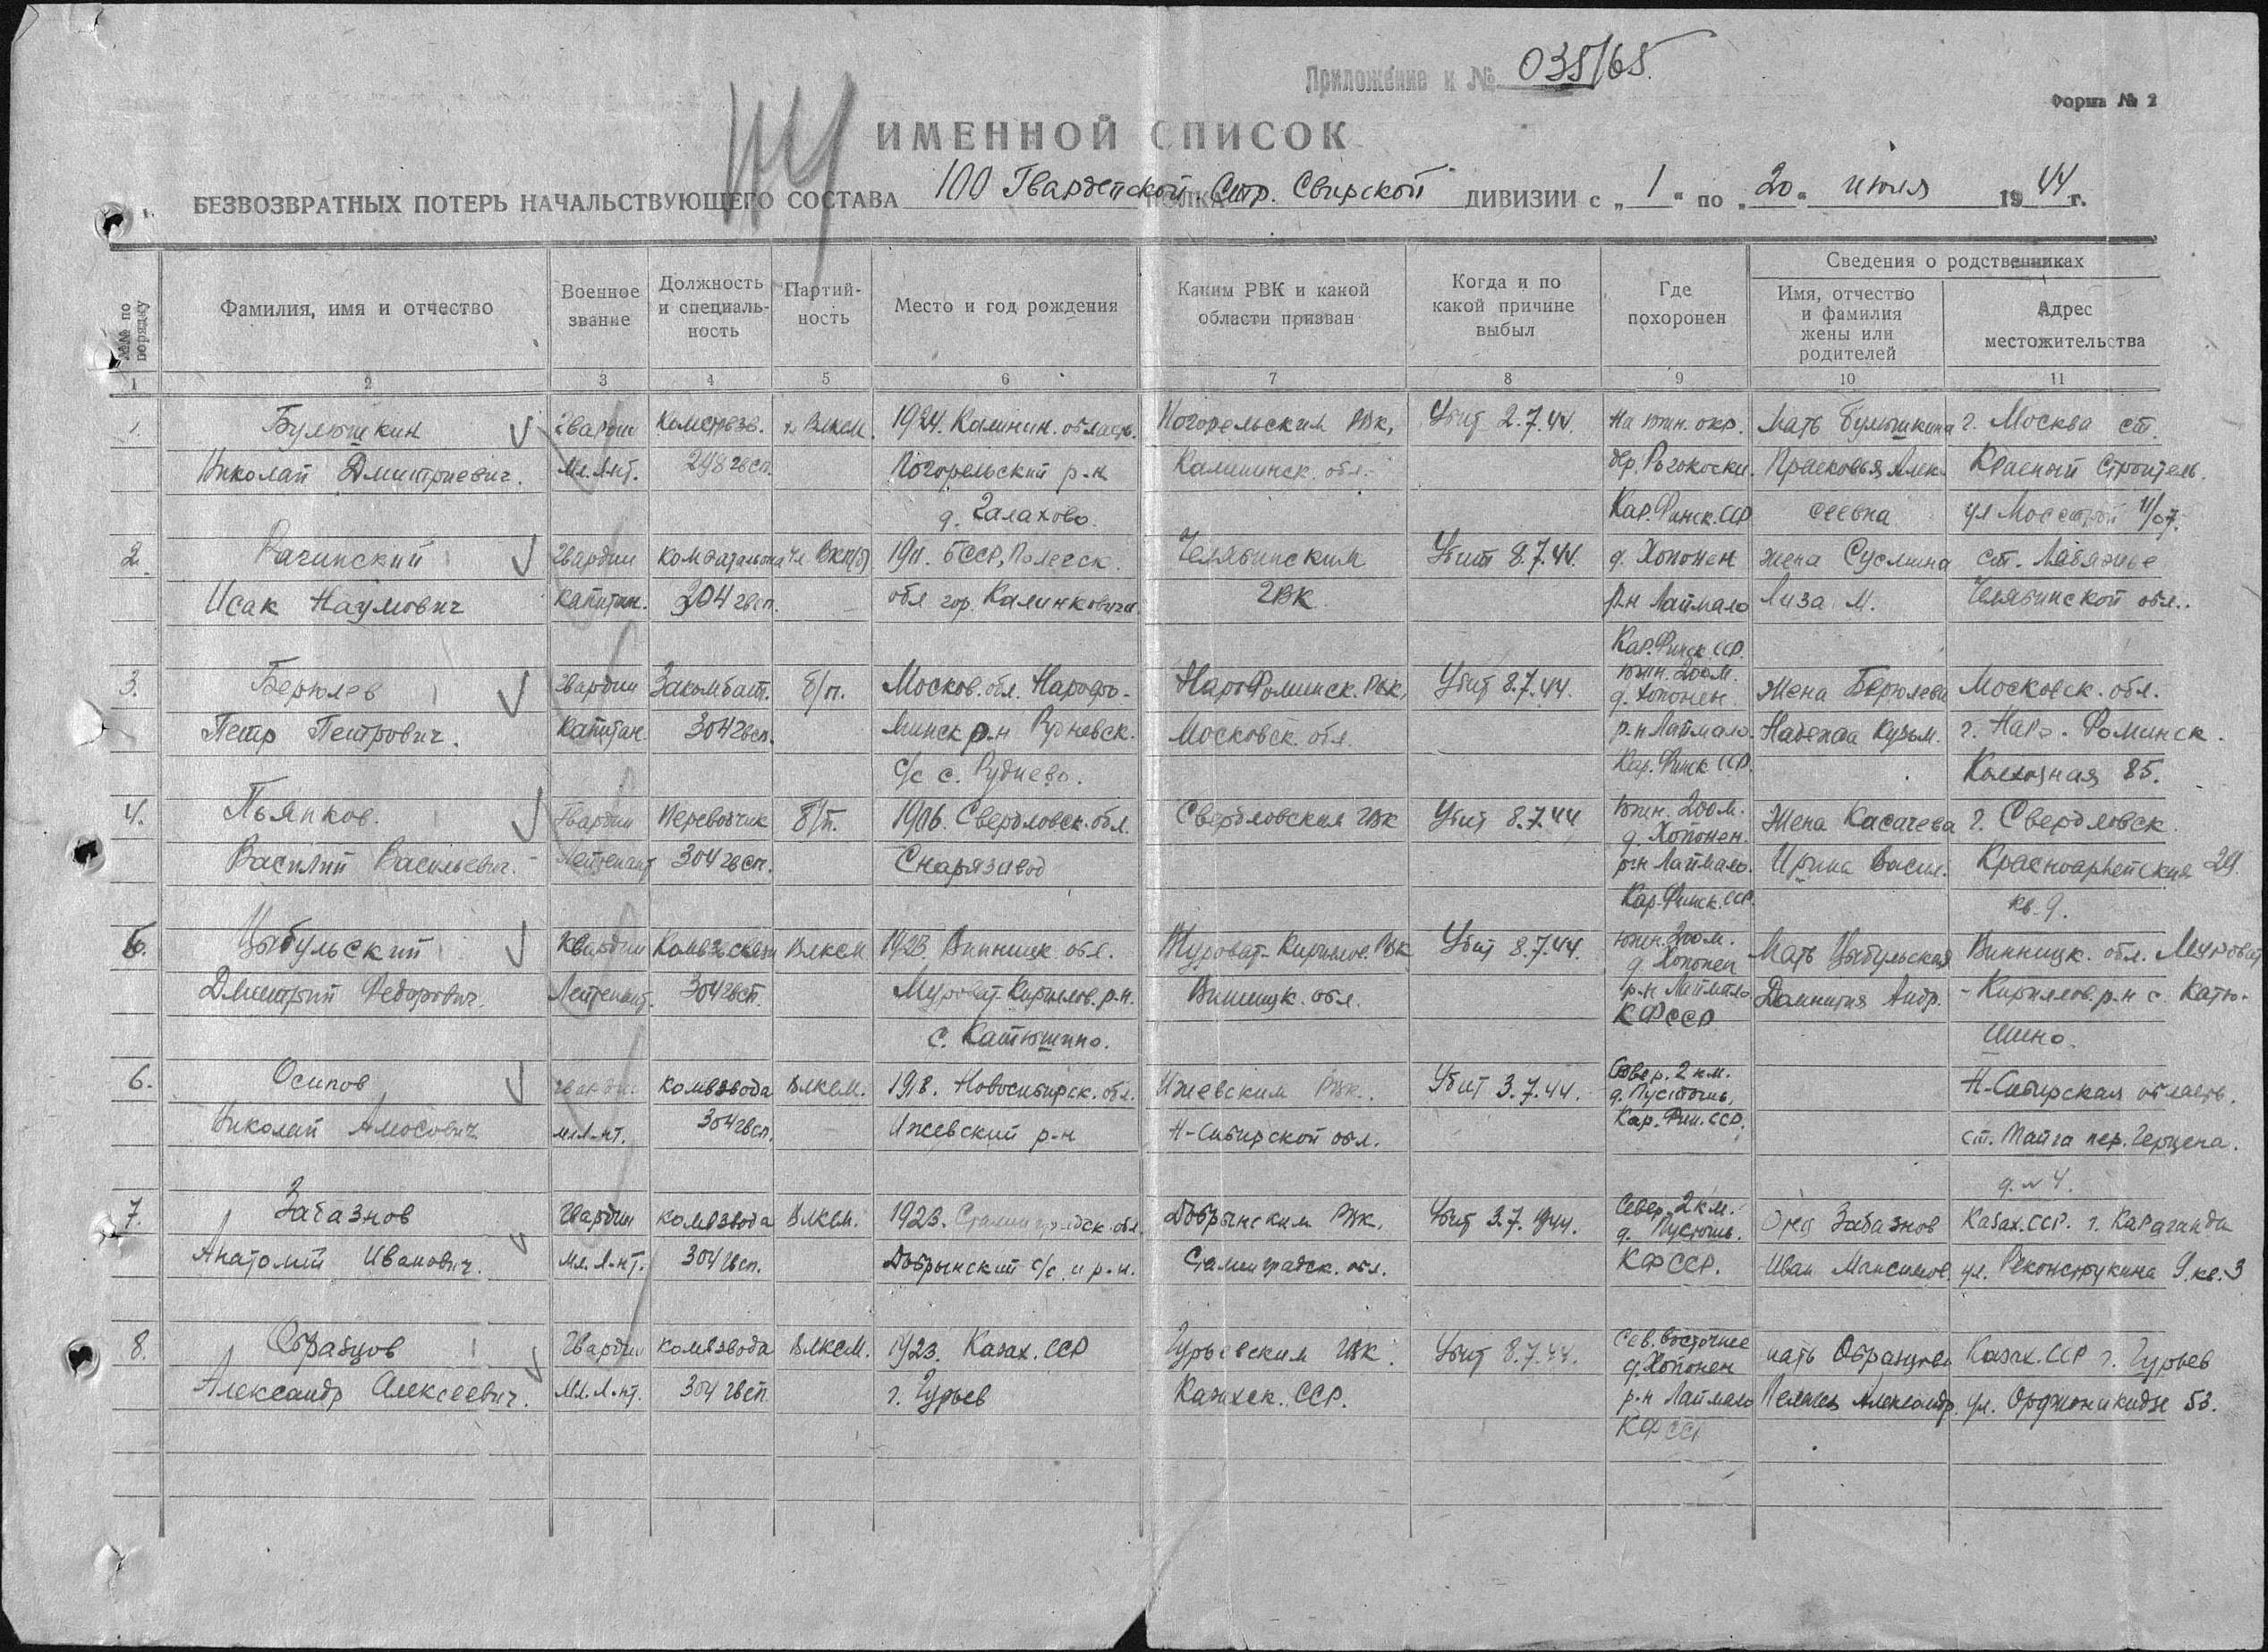 Приложение к № 038/65.
Форма № 2
ИМЕННОЙ СПИСОК
БЕЗВОЗВРАТНЫХ ПОТЕРЬ НАЧАЛЬСТВУЮЩЕГО СОСТАВА 100 Гвардейской Стр. Свирской ДИВИЗИИ с „1“ по „20“ июля 1944 г.
№№ по порядку
Фамилия, имя и отчество
Военное звание
Должность и специаль-ность
Партий-ность
Место и год рождения
Каким РВК и какой области призван
Когда и по какой причине выбыл
Где похоронен
Сведения о родственниках
Имя, отчество и фамилия жены или родителей
Адрес местожительства
1 2 3 4 5 6 7 8 9 10 11
1. Булюшкин гвардии ВЛКСМ. 1924. Калинин. область. Погорельским РВК, Убит 2.7.44. На южн. окр. Мать Булюшкина г. Москва ст.
Николай Дмитриевич. мл. л-нт. Погорельский р-н Калининск. обл. дер. Рогокоски. Прасковья Алек- Красный Строитель.
д. Галахово. Кар. Финск. ССР сеевна ул
2. Рагинский гвардии комбатальона Чл ВКП(б) 1911. БССР, Полесск. Челябинским Убит 8.7.44. д. Хопонен жена Суслина ст. Лебяжье
Исак Наумович капитан. 304 гвсп. обл гор. Калинковичи ГВК р-н Лаймало Лиза М. Челябинской обл.
Кар. Финск ССР.
3. Берюлев гвардии Закомбат. б/п. Москов. обл. Нарофо- Наро Фоминск. РВК, Убит 8.7.44. южн. 200 м. д. Хопонен. жена Берюлева Московск. обл.
Петр Петрович. капитан. 304 гвсп. минск р-н Рудневск. Московск. обл. р-н Лаймало. Надежда Кузьм. г. Наро-Фоминск.
с/с с. Руднево. Кар. Финск ССР. Колхозная 85.
4. Пьянков. Гвардии переводчик б/п. 1906. Свердловск. обл. Свердловским ГВК Убит 8.7.44 южн. 200 м. д. Хопонен. Жена Касачева г. Свердловск.
Василий Васильевич. Лейтенант 304 гвсп. р-н Лаймало. Ирина Васил. Красноармейская 29.
Кар. Финск. ССР. кв. 9.
5. Цыбульский гвардии ВЛКСМ 1923. Винницк. обл. Муроват-Курилов. РВК Убит 8.7.44. южн. 200 м. д. Хопонен Мать Цыбульская Винницк. обл. Муроват
Дмитрий Федорович. Лейтенант. 304 гвсп. Муроват. Курилов. р-н. Винницк. обл. р-н Лаймало Домникия Андр. -Курилов. р-н с. Катю-
с. Катюшино. КФССР шино.
6. Осипов гвардии комвзвода ВЛКСМ. 1918. Новосибирск. обл. Ижевским РВК. Убит 3.7.44. Север. 2 км. д. Пустошь, Н-Сибирская область.
Николай Амосович мл. л-нт. 304 гвсп. Ижевский р-н Н-Сибирской обл. Кар. Фин. ССР. ст. Тайга пер. Герцена.
д. № 4.
7. Забазнов гвардии комвзвода ВЛКСМ. 1923. Сталинградск. обл. Добрынским РВК, Убит 3.7.1944. Север. 2 км. д. Пустошь. Отец Забазнов Казах. ССР. г. Караганда
Анатолий Иванович. мл. л-нт. 304 гвсп. Добрынский с/с и р-н. Сталинградск. обл. КФССР. Иван Максимов. ул. 9. кв. 3
8. Образцов гвардии комвзвода ВЛКСМ. 1923. Казах. ССР Гурьевским ГВК. Убит 8.7.44. Сев. восточнее д. Хопонен мать Образцова Казах. ССР г. Гурьев
Александр Алексеевич. мл. л-нт. 304 гвсп. г. Гурьев Казахск. ССР. р-н Лаймало Пелагея Александр. ул. Орджоникидзе 53.
КФССР